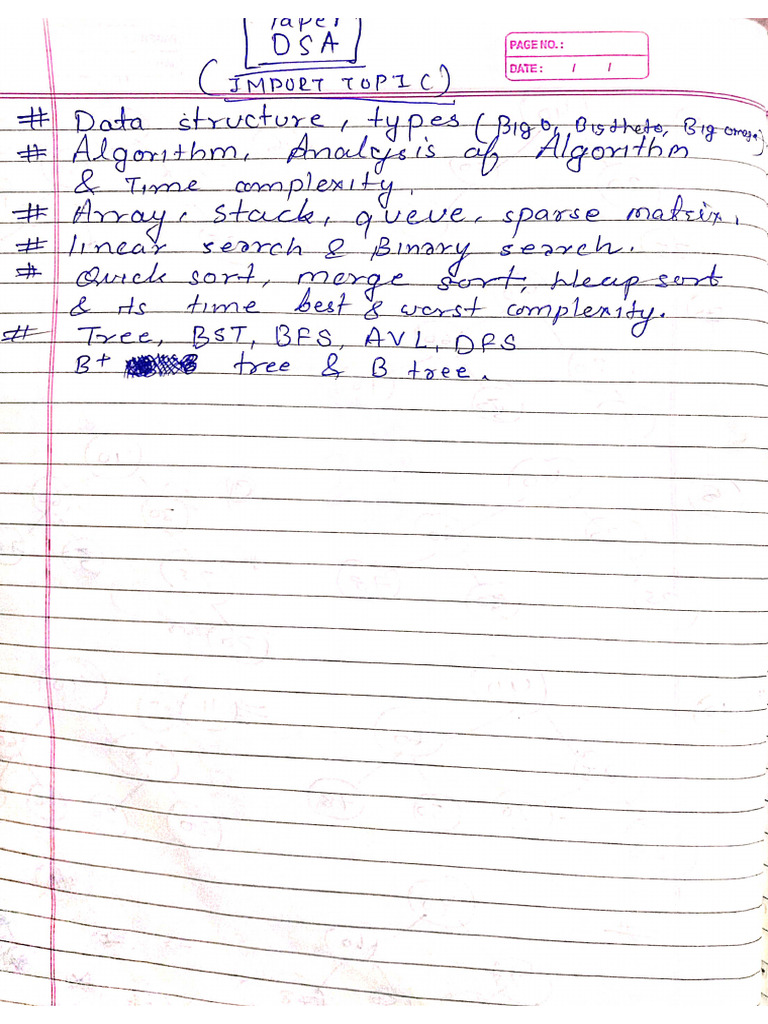 Paper
DSA
PAGE NO.:
DATE: / /
(IMPORT TOPIC)
# Data structure, types (Big O, Big theta, Big omega)
# Algorithm, Analysis of Algorithm
& Time complexity.
# Array, stack, queue, sparse matrix.
# linear search & Binary search.
# Quick sort, merge sort, Heap sort
& its time best & worst complexity.
# Tree, BST, BFS, AVL, DFS
B+ tree & B tree.